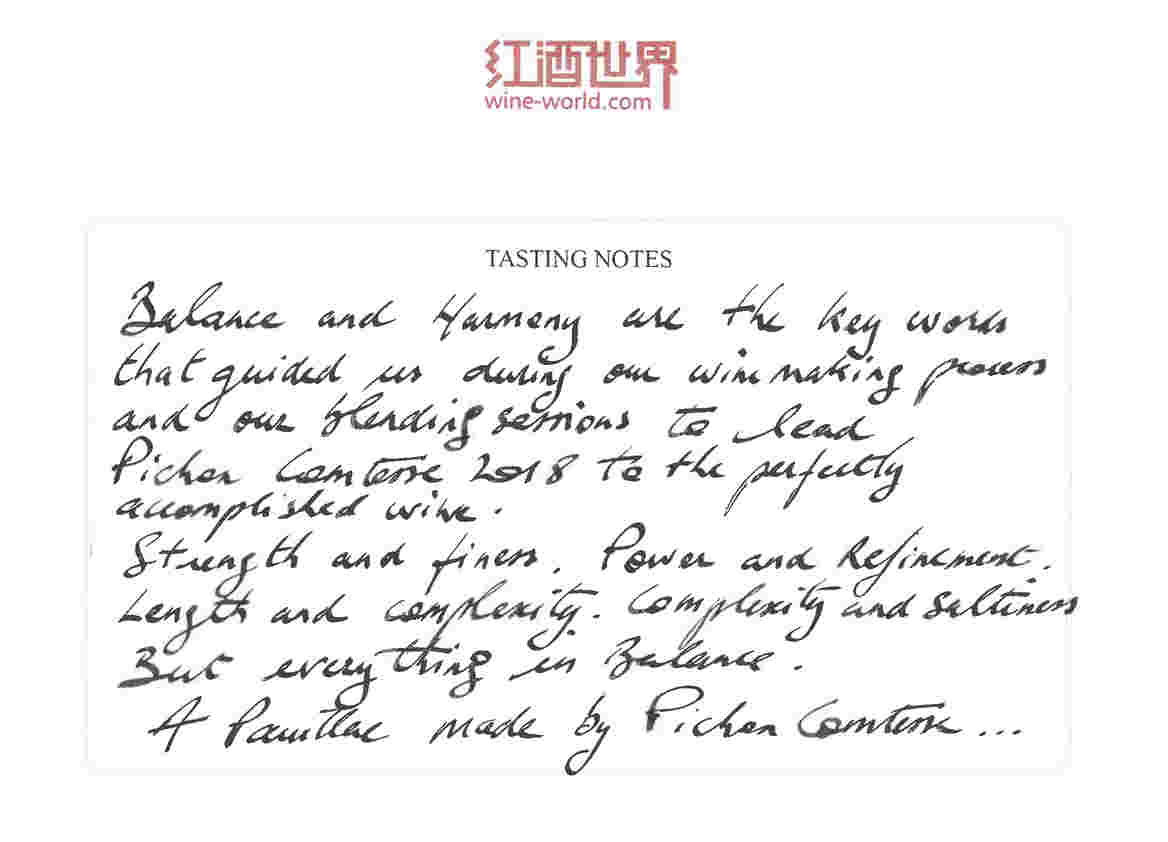 红酒世界
wine-world.com
TASTING NOTES
Balance and Harmony are the key words
that guided us during our wine making process
and our blending sessions to lead
Pichon Comtesse 2018 to the perfectly
accomplished wine.
Strength and finess. Power and Refinement.
Length and complexity. Complexity and saltiness
But everything in Balance.
A Pauillac made by Pichon Comtesse...